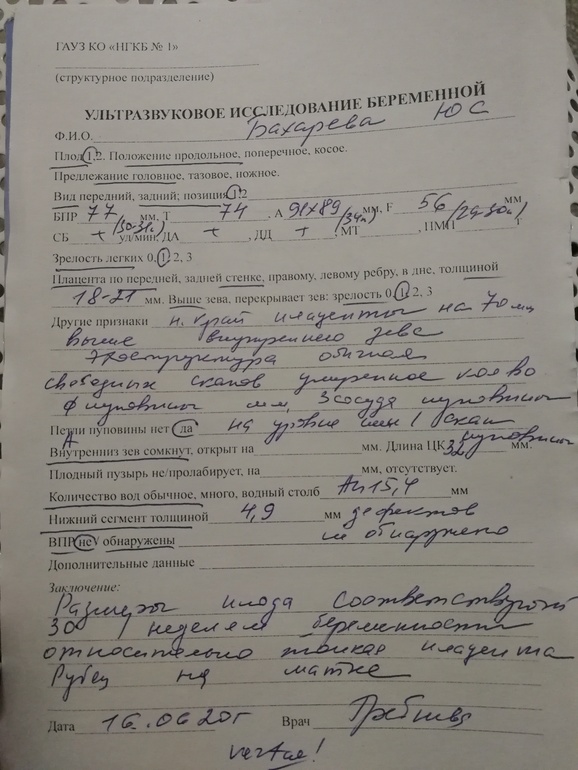 ГАУЗ КО «НГКБ № 1»
(структурное подразделение)
УЛЬТРАЗВУКОВОЕ ИССЛЕДОВАНИЕ БЕРЕМЕННОЙ
Ф.И.О. Бахарева Ю С
Плод 1,2. Положение продольное, поперечное, косое.
Предлежание головное, тазовое, ножное.
Вид передний, задний; позиция 1,2
БПР 77 мм, Т 74, А 91х89 мм, F 56 мм
(30-31н) (34н) (29-30н)
СБ + уд/мин, ДА +, ДД +, МТ, ПМП г
Зрелость легких 0, 1, 2, 3
Плацента по передней, задней стенке, правому, левому ребру, в дне, толщиной
18-21 мм. Выше зева, перекрывает зев: зрелость 0, 1, 2, 3
Другие признаки н. край плаценты на 70 мм
выше внутреннего зева
Эхоструктура обычная
свободных умеренное кол во
пуповины мм, 3 сосуда пуповины
Петли пуповины нет да на уровне шеи 1
пуповины
Внутренниз зев сомкнут, открыт на мм. Длина ЦК 32 мм.
Плодный пузырь не/пролабирует, на мм, отсутствует.
Количество вод обычное, много, водный столб 15,4 мм
Нижний сегмент толщиной 4,9 мм дефектов
ВПР не√ обнаружены не обнаружено
Дополнительные данные
Заключение:
Размеры плода соответствуют
30 неделям беременности
относительно тонкая плацента
Рубец на матке
Дата 16.06 20г Врач
vertae!